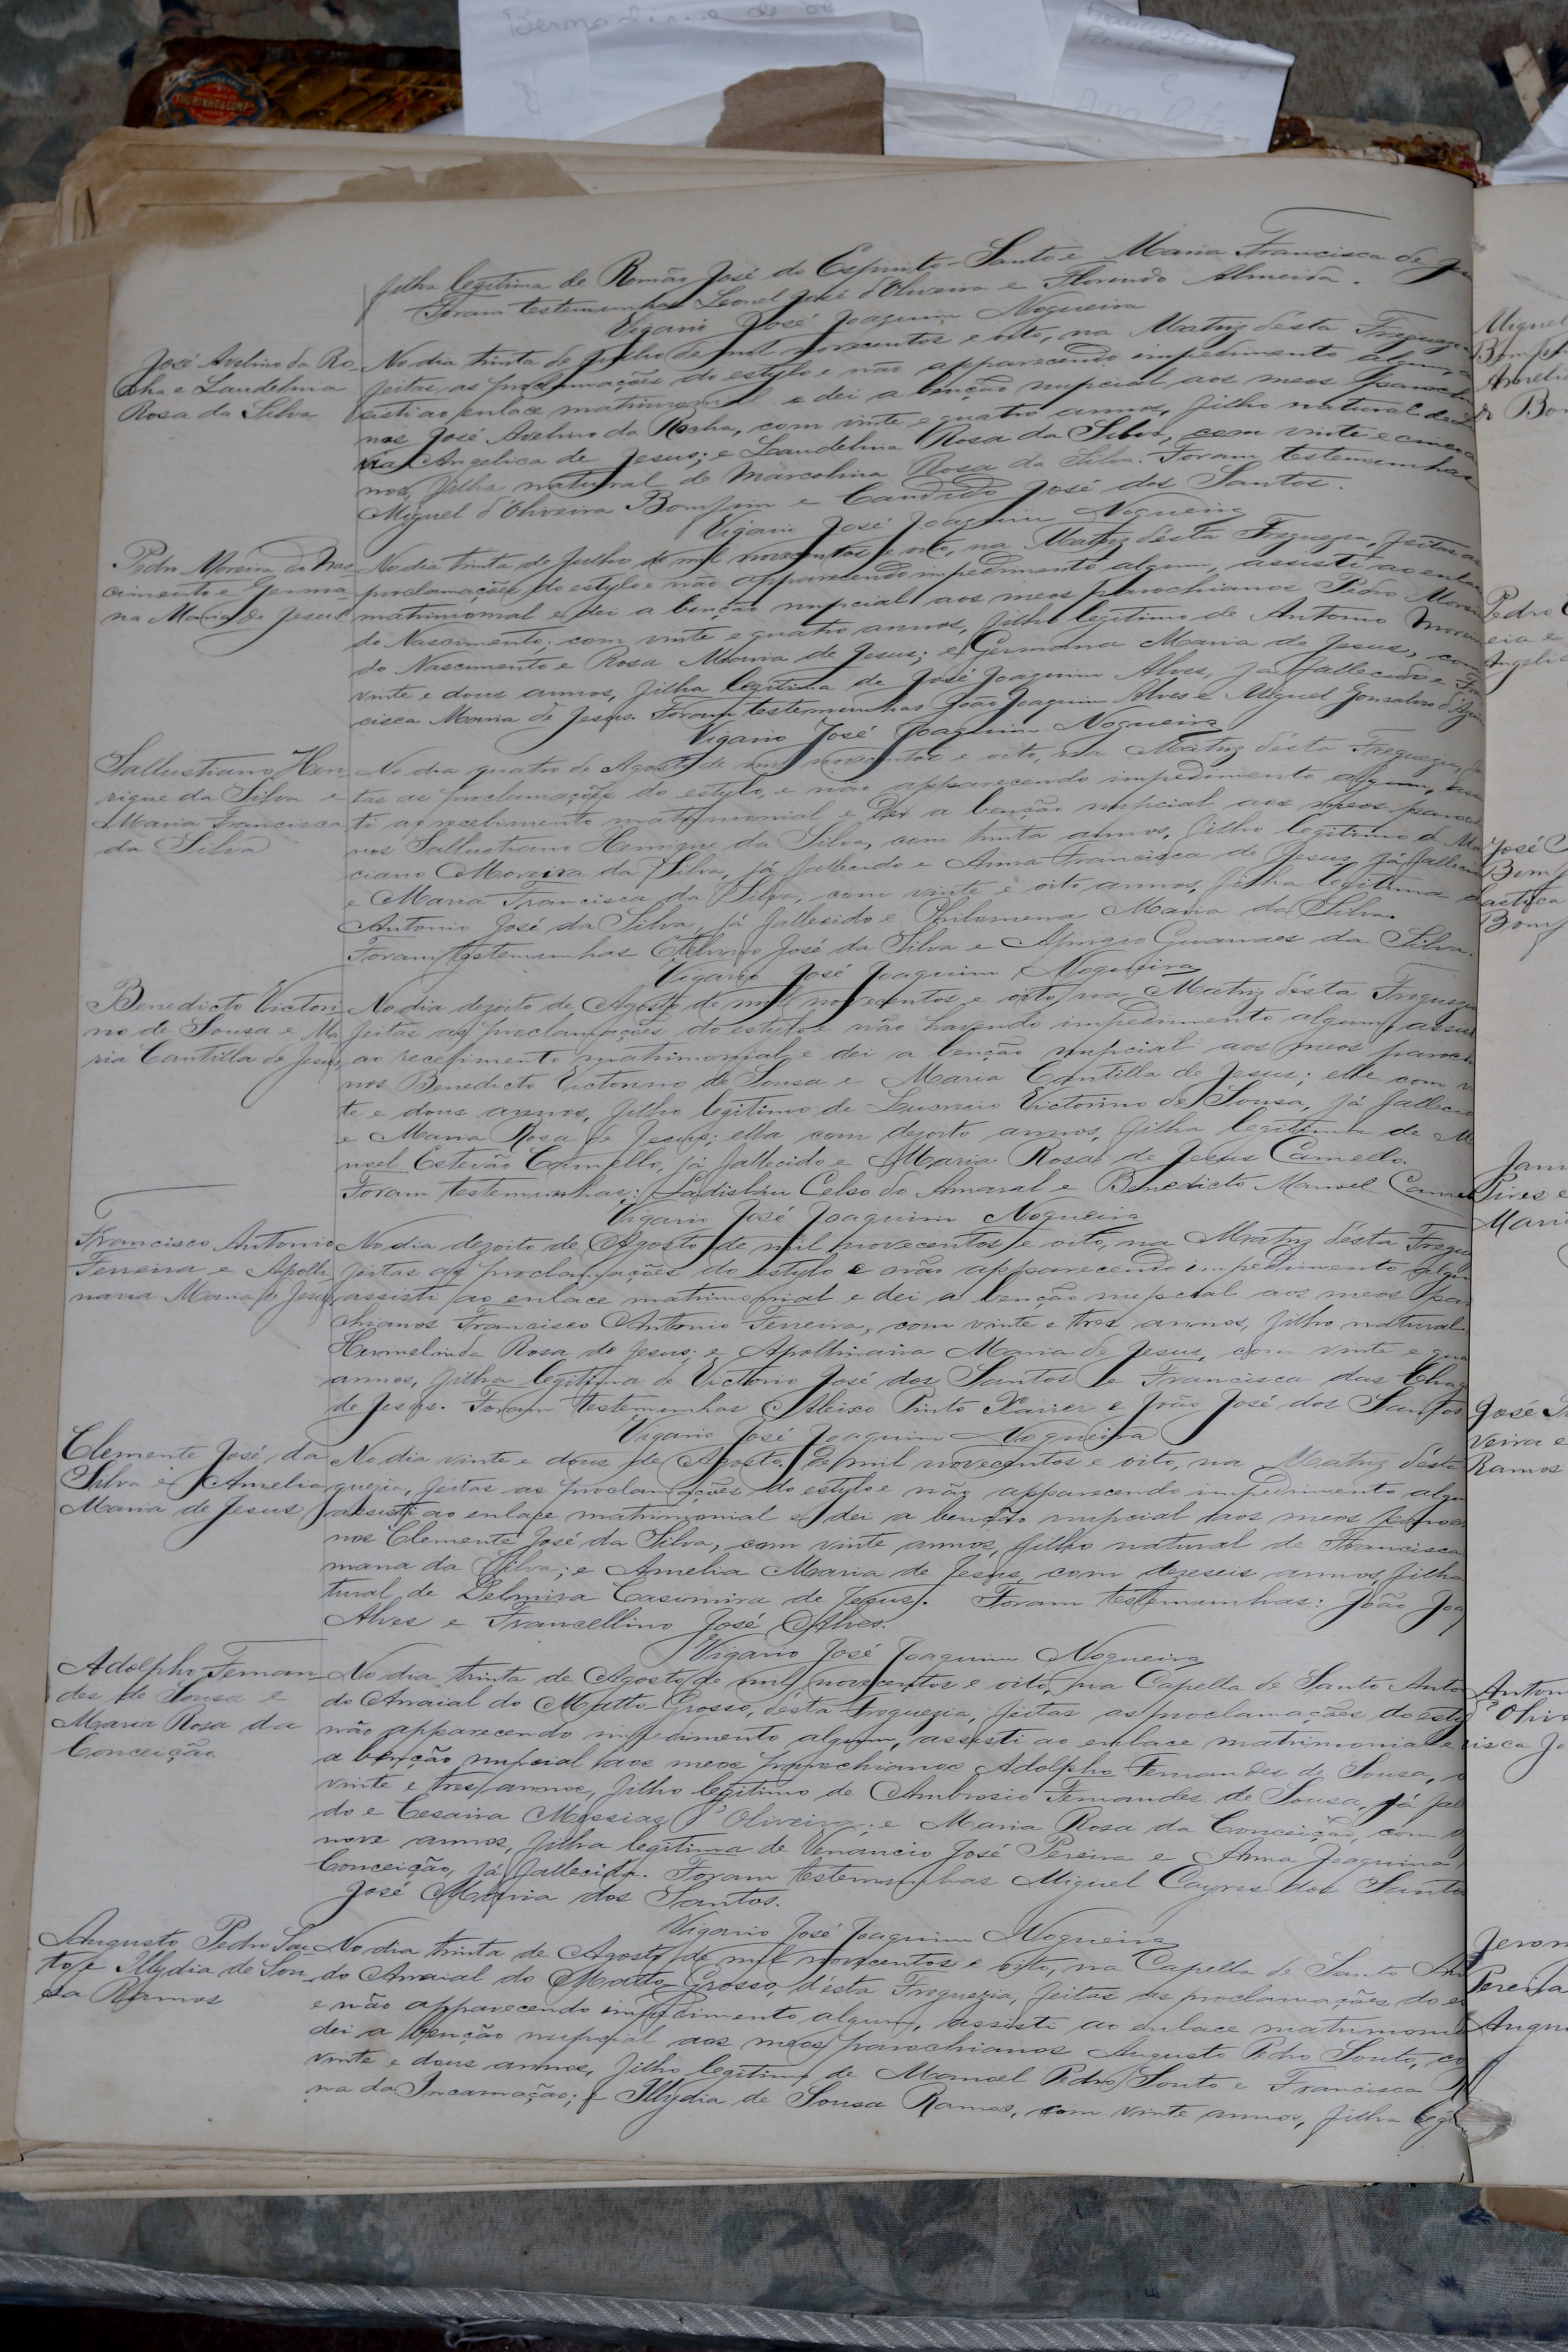 Bernadino de
TOURINHO & COMP.
filha legitima de Romão José do Espirito-Santo e Maria Francisca de
Foram testemunhas Leonel José d'Oliveira e Florendo Almeida.
Vigario José Joaquim Nogueira
José Avelino da Ro-
cha e Laudelina
Rosa da Silva
No dia trinta de Julho de mil novecentos e oito, na Matriz désta Freguezia
feitas as proclamações do estylo e não apparecendo impedimento algum, a
sisti ao enlace matrimonial e dei a benção nupcial aos meos paroch
nos José Avelino da Rocha, com vinte e quatro annos, filho natural de
Angelica de Jesus; e Laudelina Rosa da Silva, com vinte e cinco
nos, filha natural de Marcolina Rosa da Silva. Foram testemunhas
Miguel d'Oliveira Bomfim e Candido José dos Santos.
Vigario José Joaquim Nogueira
Pedro Moreira do Nas-
cimento e Germa-
na Maria de Jesus
No dia trinta de Julho de mil novecentos e oito, na Matriz désta Freguezia, feitas as
proclamações do estylo e não apparecendo impedimento algum, assisti ao enlace
matrimonial e dei a benção nupcial aos meos parochianos Pedro Morei
do Nascimento, com vinte e quatro annos, filho legitimo de Antonio Morei
do Nascimento e Rosa Maria de Jesus; e Germana Maria de Jesus, com
vinte e dous annos, filha legitima de José Joaquim Alves, já fallecido e Fran
cisca Maria de Jesus. Foram testemunhas João Joaquim Alves e Miguel Gonsalves d'
Vigario José Joaquim Nogueira
Sallustiano Hen-
rique da Silva e
Maria Francisca
da Silva
No dia quatro de Agosto de mil novecentos e oito, na Matriz désta Freguezia, fei
tas as proclamações do estylo, e não apparecendo impedimento algum, assis
ti ao recebimento matrimonial e dei a benção nupcial aos meos paroch
nos Sallustiano Henrique da Silva, com trinta annos, filho legitimo de Ma
ciano Moreira da Silva, já fallecido e Anna Francisca de Jesus, já fallecida
e Maria Francisca da Silva, com vinte e oito annos, filha legitima d
Antonio José da Silva, já fallecido e Philomena Maria da Silva.
Foram testemunhas José da Silva e Aprigio Guanaes da Silva.
Vigario José Joaquim Nogueira
Benedicto Victori-
no de Sousa e Ma
ria Cantilla de Jesus
No dia dezoito de Agosto de mil novecentos e oito, na Matriz désta Freguezia
feitas as proclamações do estylo e não havendo impedimento algum, assis
ao recebimento matrimonial e dei a benção nupcial aos meos paroch
nos Benedicto Victorino de Sousa e Maria Cantilla de Jesus; elle com v
te e dous annos, filho legitimo de Lucrecio Victorino de Sousa, já fallecido
e Maria Rosa de Jesus; ella com dezoito annos, filha legitima de M
noel Estevão Camello, já fallecido e Maria Rosa de Jesus Camello.
Foram testemunhas: Ladisláu Celso do Amaral e Benedicto Manoel Camel
Vigario José Joaquim Nogueira
Francisco Antonio
Ferreira e Apolli-
naria Maria de Jesus
No dia dezoito de Agosto de mil novecentos e oito, na Matriz désta Fregue
feitas as proclamações do estylo e não apparecendo impedimento algum
assisti ao enlace matrimonial e dei a benção nupcial aos meos par
chianos Francisco Antonio Ferreira, com vinte e tres annos, filho natural
Hermelinda Rosa de Jesus; e Apollinaria Maria de Jesus, com vinte e qua
annos, filha legitima de Victorio José dos Santos e Francisca das Chag
de Jesus. Foram testemunhas Aleixo Pinto Xavier e João José dos Santos
Vigario José Joaquim Nogueira
Clemente José da
Silva e Amelia
Maria de Jesus
No dia vinte e dous de Agosto de mil novecentos e oito, na Matriz désta
guezia, feitas as proclamações do estylo e não apparecendo impedimento algu
assisti ao enlace matrimonial e dei a benção nupcial aos meos paroch
nos Clemente José da Silva, com vinte annos, filho natural de Francisca
mana da Silva; e Amelia Maria de Jesus, com dezeseis annos, filha
tural de Delmira Casimira de Jesus. Foram testemunhas: João Joa
Alves e Francellino José Alves.
Vigario José Joaquim Nogueira
Adolpho Fernan-
des de Sousa e
Maria Rosa da
Conceição
No dia trinta de Agosto de mil novecentos e oito, na Capella de Santo Anto
do Arraial do Matto-Grosso, désta Freguezia, feitas as proclamações do esty
não apparecendo impedimento algum, assisti ao enlace matrimonial e
a benção nupcial aos meos parochianos Adolpho Fernandes de Sousa,
vinte e tres annos, filho legitimo de Ambrosio Fernandes de Sousa, já fal
do e Cesaria Messias d'Oliveira; e Maria Rosa da Conceição, com
nove annos, filha legitima de Venancio José Pereira e Anna Joaquina
Conceição, já fallecida. Foram testemunhas Miguel Cayres dos Santos
José Maria dos Santos.
Vigario José Joaquim Nogueira
Augusto Pedro Sou-
to e Illydia de Sou-
sa Ramos
No dia trinta de Agosto de mil novecentos e oito, na Capella de Santo An
do Arraial do Matto-Grosso, désta Freguezia, feitas as proclamações do es
e não apparecendo impedimento algum, assisti ao enlace matrimoni
dei a benção nupcial aos meos parochianos Augusto Pedro Souto, co
vinte e dous annos, filho legitimo de Manoel Pedro Souto e Francisca
na da Incarnação; e Illydia de Sousa Ramos, com vinte annos, filha legi
Miguel
Bomfi
Aureli
Bo
Pedro
eia e
Angeli
José
Bomf
lastica
Bomf
Janu
Pires e
Mari
José
veira e
Ramos
Anton
d'Olive
cisca Jo
Jeron
Pereira
Augu